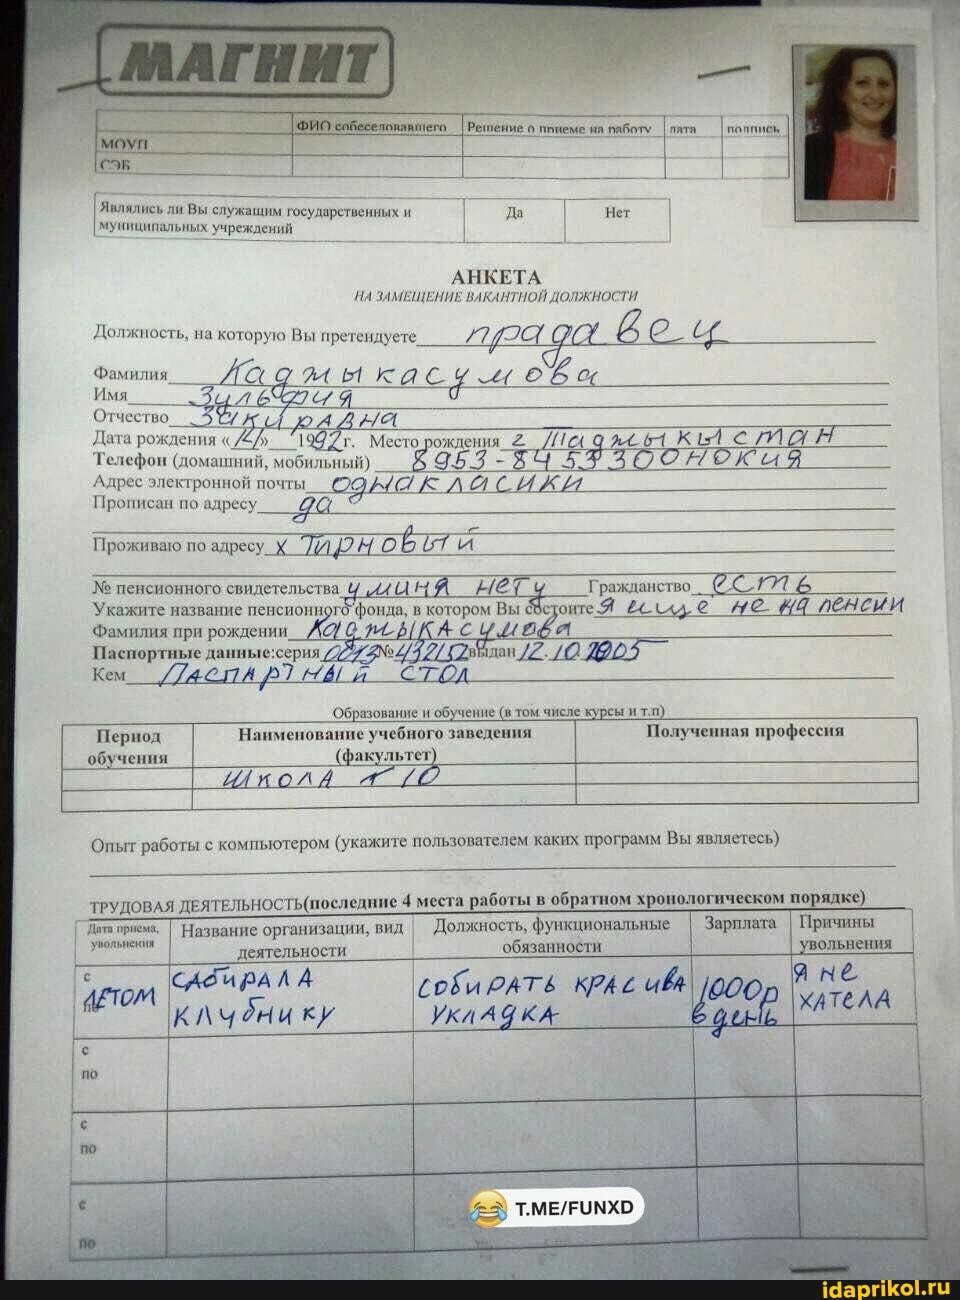 МАГНИТ
ФИО собеседовавшего Решение о приеме на работу дата подпись
МОУП
СЭБ
Являлись ли Вы служащим государственных и муниципальных учреждений Да Нет
АНКЕТА
НА ЗАМЕЩЕНИЕ ВАКАНТНОЙ ДОЛЖНОСТИ
Должность, на которую Вы претендуете прадавец
Фамилия Каджыкасумова
Имя Зульфия
Отчество Закиравна
Дата рождения «14» 1992г. Место рождения г Таджыкыстан
Телефон (домашний, мобильный) 8953-8453300нокия
Адрес электронной почты однакласики
Прописан по адресу да
Проживаю по адресу х Тирновый
№ пенсионного свидетельства у миня нету Гражданство есть
Укажите название пенсионного фонда, в котором Вы состоите я ище не на пенсии
Фамилия при рождении Каджыкасумова
Паспортные данные:серия 0013 № 432152 выдан 12.10.2005
Кем Паспартный стол
Образование и обучение (в том числе курсы и т.п)
Период обучения Наименование учебного заведения (факультет) Полученная профессия
Школа № 10
Опыт работы с компьютером (укажите пользователем каких программ Вы являетесь)
ТРУДОВАЯ ДЕЯТЕЛЬНОСТЬ(последние 4 места работы в обратном хронологическом порядке)
Дата приема, увольнения Название организации, вид деятельности Должность, функциональные обязанности Зарплата Причины увольнения
с летом по сабирала клубнику собирать красива укладка 1000р в день я не хатела
с
по
с
по
с
по
T.ME/FUNXD
idaprikol.ru